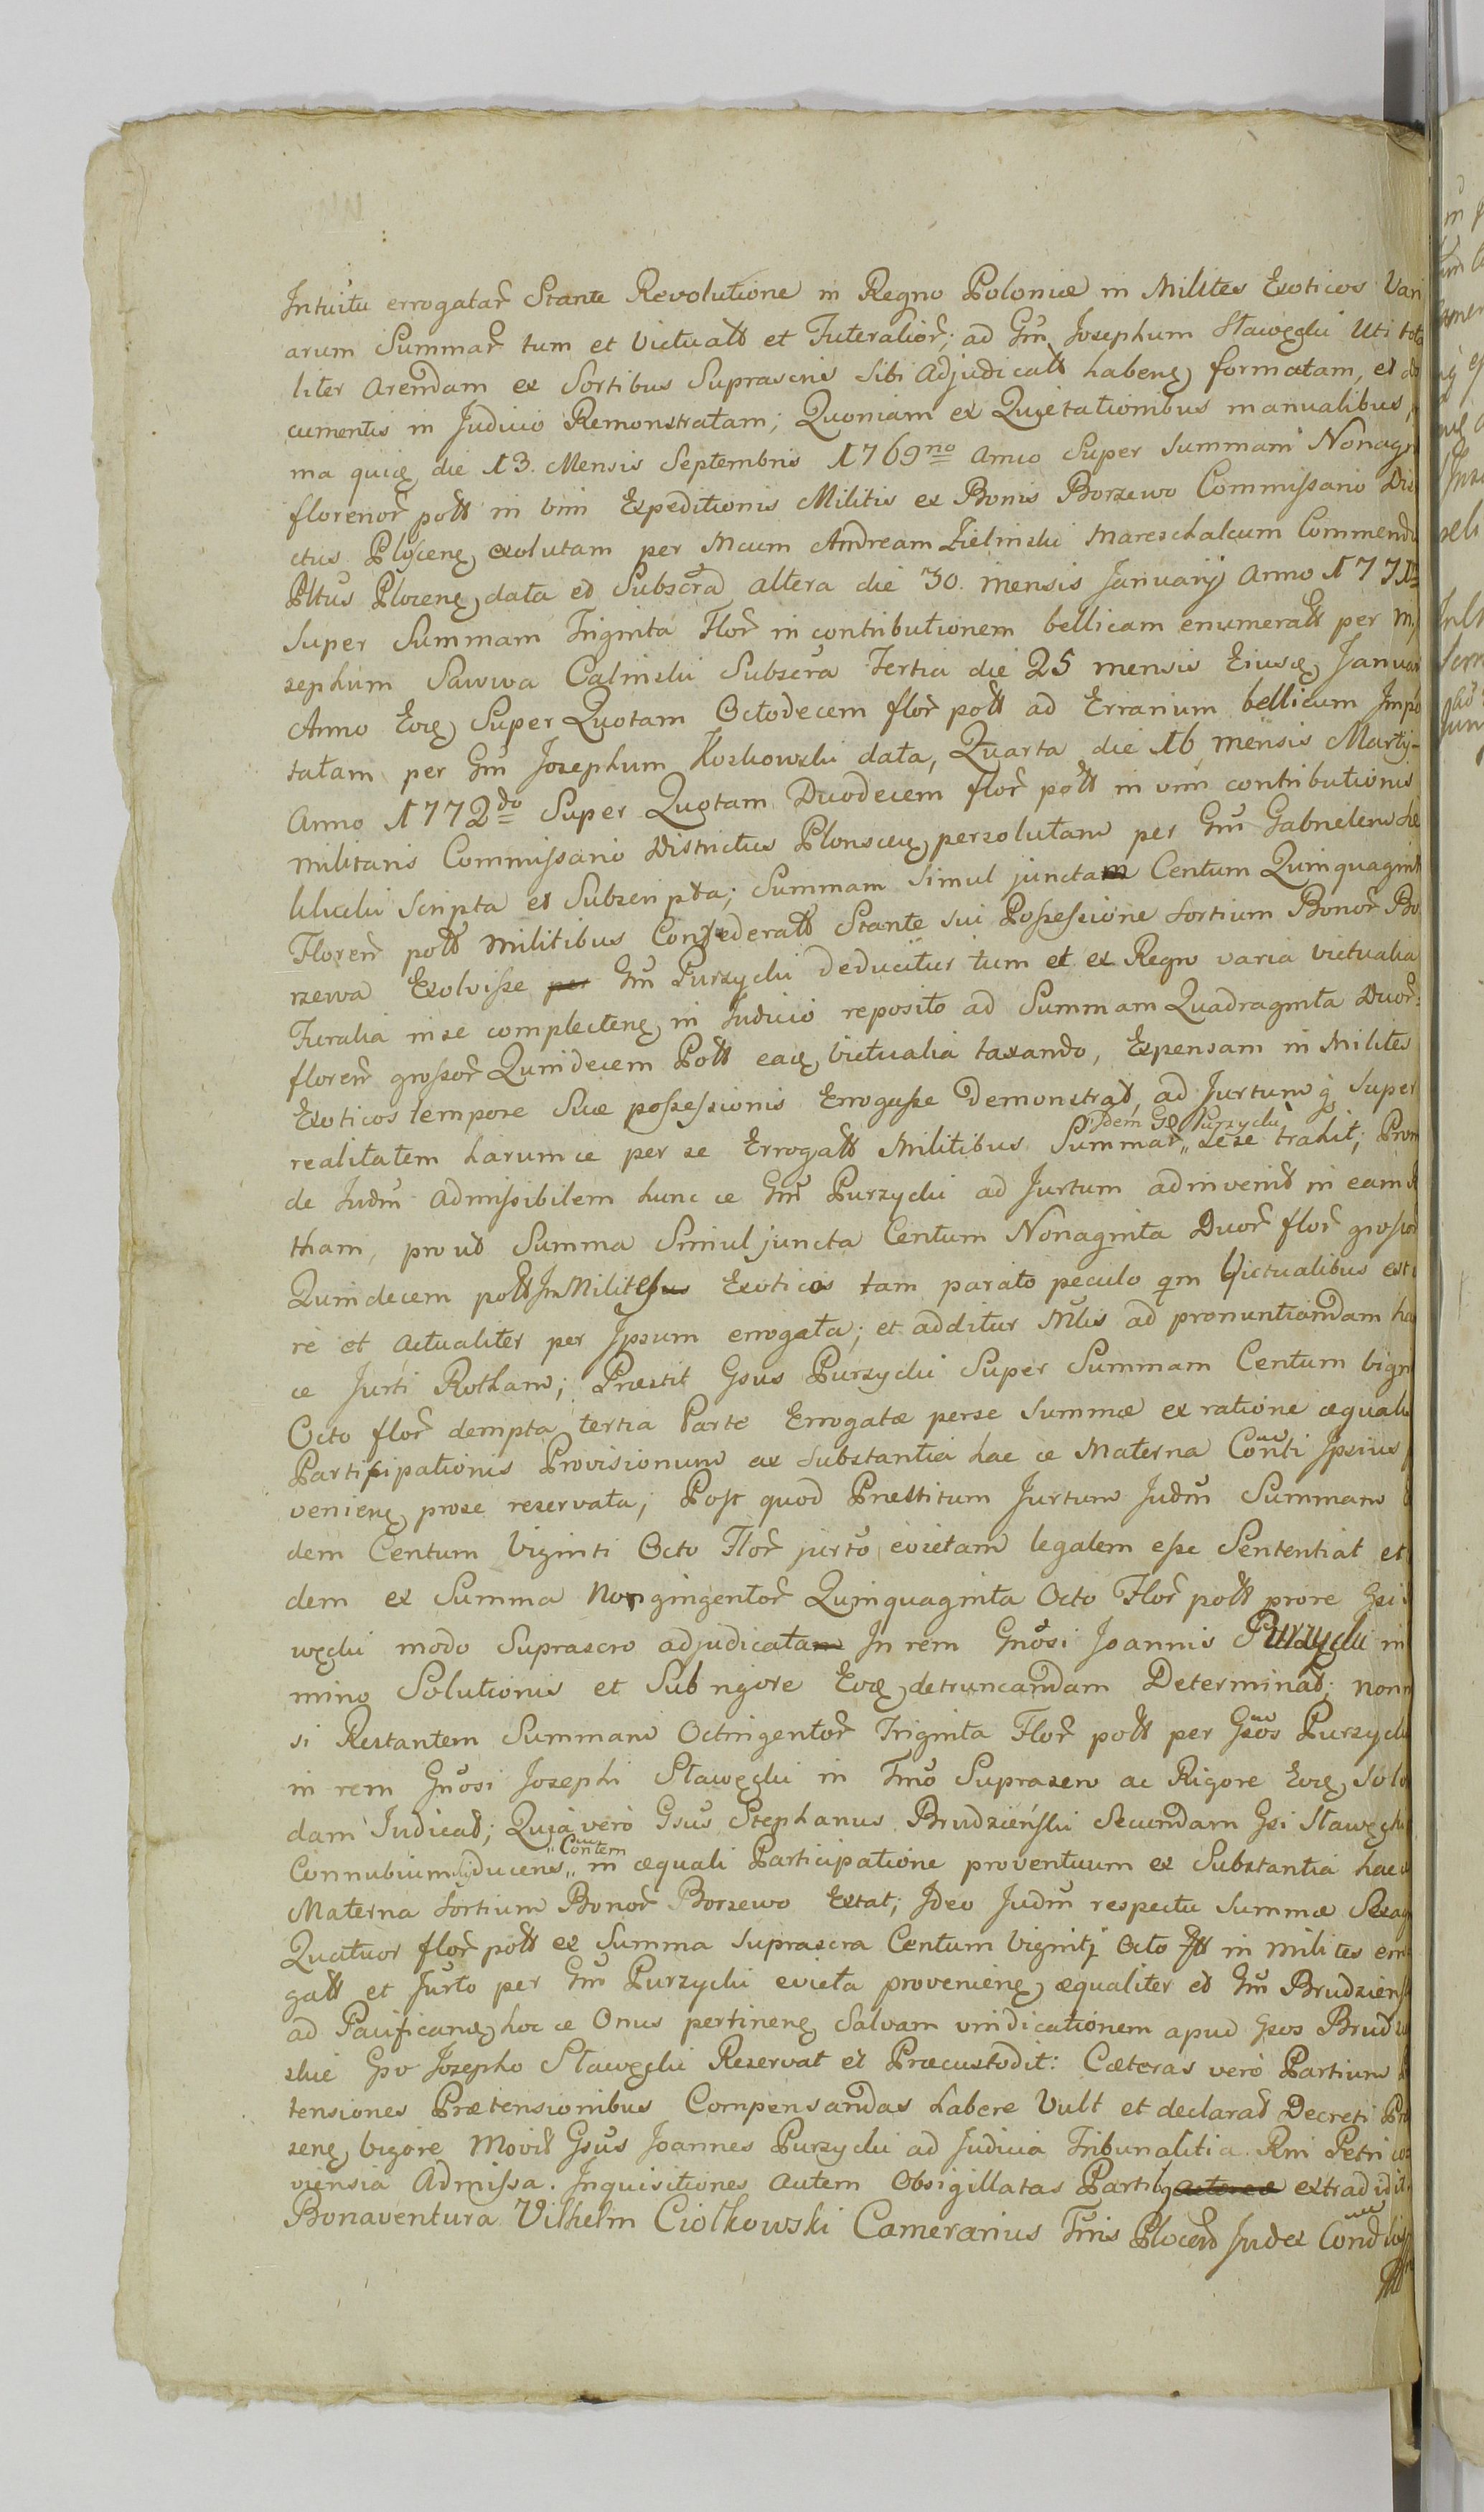 Intuitu errogatar̃ Stante Revolutione in Regno Poloniæ in Milites Exoticos Vari
arum Summar̃ tum et Victualt et Futeralior̃; ad Gm̃ Josephum Stawęcki Uti tota
liter Arendam ex Sortibus Suprascris sibi adjudicatt habenę formatam, et do
cumentis in Judicio Remonstratam; Quoniam ex Quietationibus manualibus,
ma quię die 13. Mensis Septembris 1769no Anno Super Summam Nonagin
florenor̃ poll in vim Expeditionis Militis ex Bonis Borzewo Commissario Di
ctus Plocenę exolutam per Mcum Andream Zielinski Mareschalcum Commend
Pltus Plocenę data et Subscra altera die 30. mensis Januarij Anno 1771
Super Summam Triginta Flor̃ in contributionem bellicam enumeratt per M
sephum Sawwa Calinski Subscra Tertia die 25 mensis Eiusę Januar
Anno Eoę Super Quotam Octodecem flor̃ poll ad Errarium bellicum Impo
tatam per Gm̃ Josephum Koskowski data, Quarta die 16 mensis Martij
Anno 1772do Super Quotam Duodecem flor̃ poll in vim contributionis
militaris Commissario Districtus Plonscenę persolutam per Gm̃ Gabrielem
scripta et Subscripta; Summam Simul junctam Centum Quinquagint
Floren̄ poll militibus Confederatt Stante sui Possessione Sortium Bonor̃ Bo
rzewa Exolvisse per Gm̃ Purzycki deducitur tum et ex Regro varia victualia
Furalia inse complectenę in Judicio reposito ad Summam Quadraginta Duor̃
floren̄ grossor̃ Quindecem Poll eaę victualia taxando, Expensam in Milites
Exoticos tempore Suæ possessionis Errogasse Demonstrat, ad Jurtum q. super
realitatem harum ce per se Errogatt Militibus Summar̃ „Idem Gs Purzycki„ sese trahit; Proin
de Judm̃ admissibilem hunc ce Gm̃ Purzycki ad Jurtum adinvenit in eam
tham, prout Summa Simul juncta Centum Nonaginta Duor̃ flor̃ grossor
Quindecem poll In Milites Exoticos tam parato peculo qm Victualibus est
re et actualiter per Ipsum errogata; et additur Mlis ad pronuntiandam ha
ce Jurti Rotham; Præstit Gsus Purzycki Super Summam Centum vigin
Octo flor̃ dempta tertia Parte Errogatæ perse Summæ ex ratione æquali
Participationis Provisionum ex Substantia hac ce Materna Conti Ipsius
venienę prose reservata; Post quod Præstitum Jurtum Judm̃ Summam
dem Centum Viginti Octo Flor̃ jurto evictam legalem esse Sententiat et
dem ex Summa Nongingentor̃ Quinquaginta Octo Flor̃ poll prore Gsi
węcki modo Suprascro adjudicatam In rem Gnosi Joannis Purzycki in
mino Solutionis et Sub rigore Eoę detruncandam Determinat; non
si Restantem Summam Octingentor̃ Triginta Flor̃ poll per Gsos Purzycki
in rem Gnosi Josephi Stawęcki in Tmo Suprascro ac Rigore Eoę Solv
dam Judicat; Quia vero Gsus Stephanus Brudzieński Secundam Gsi Stawęcki
Connubium ducens „Contem„ in æquali Participatione proventuum ex Substantia hac
Materna Sortium Bonor̃ Borzewo Extat; Ideo Judm̃ respectu Summæ Sexag
Quatuor flor̃ poll ex Summa suprascra Centum Viginti Octo fll in milites erro
gatt et Jurto per Gm̃ Purzycki evicta provenienę æqualiter et Gm̃ Brudziens
ad Pacificanę hoc ce Onus pertinenę Salvam vindicationem apud Gsos Brudzi
skie Gso Josepho Stawęcki Reservat et Præcustodit: Cæteras vero Partium
tensiones Prætensionibus Compensandas habere Vult et declarat Decreti Præ
senę vigore Movit Gsus Joannes Purzycki ad Judicia Tribunalitia Rni Petrico
viensia Admissa. Inquisitiones autem Obsigillatas Partibꝗ extradidit.
Bonaventura Vilhelm Ciołkowski Camerarius Tmis Plocen Judex Cond